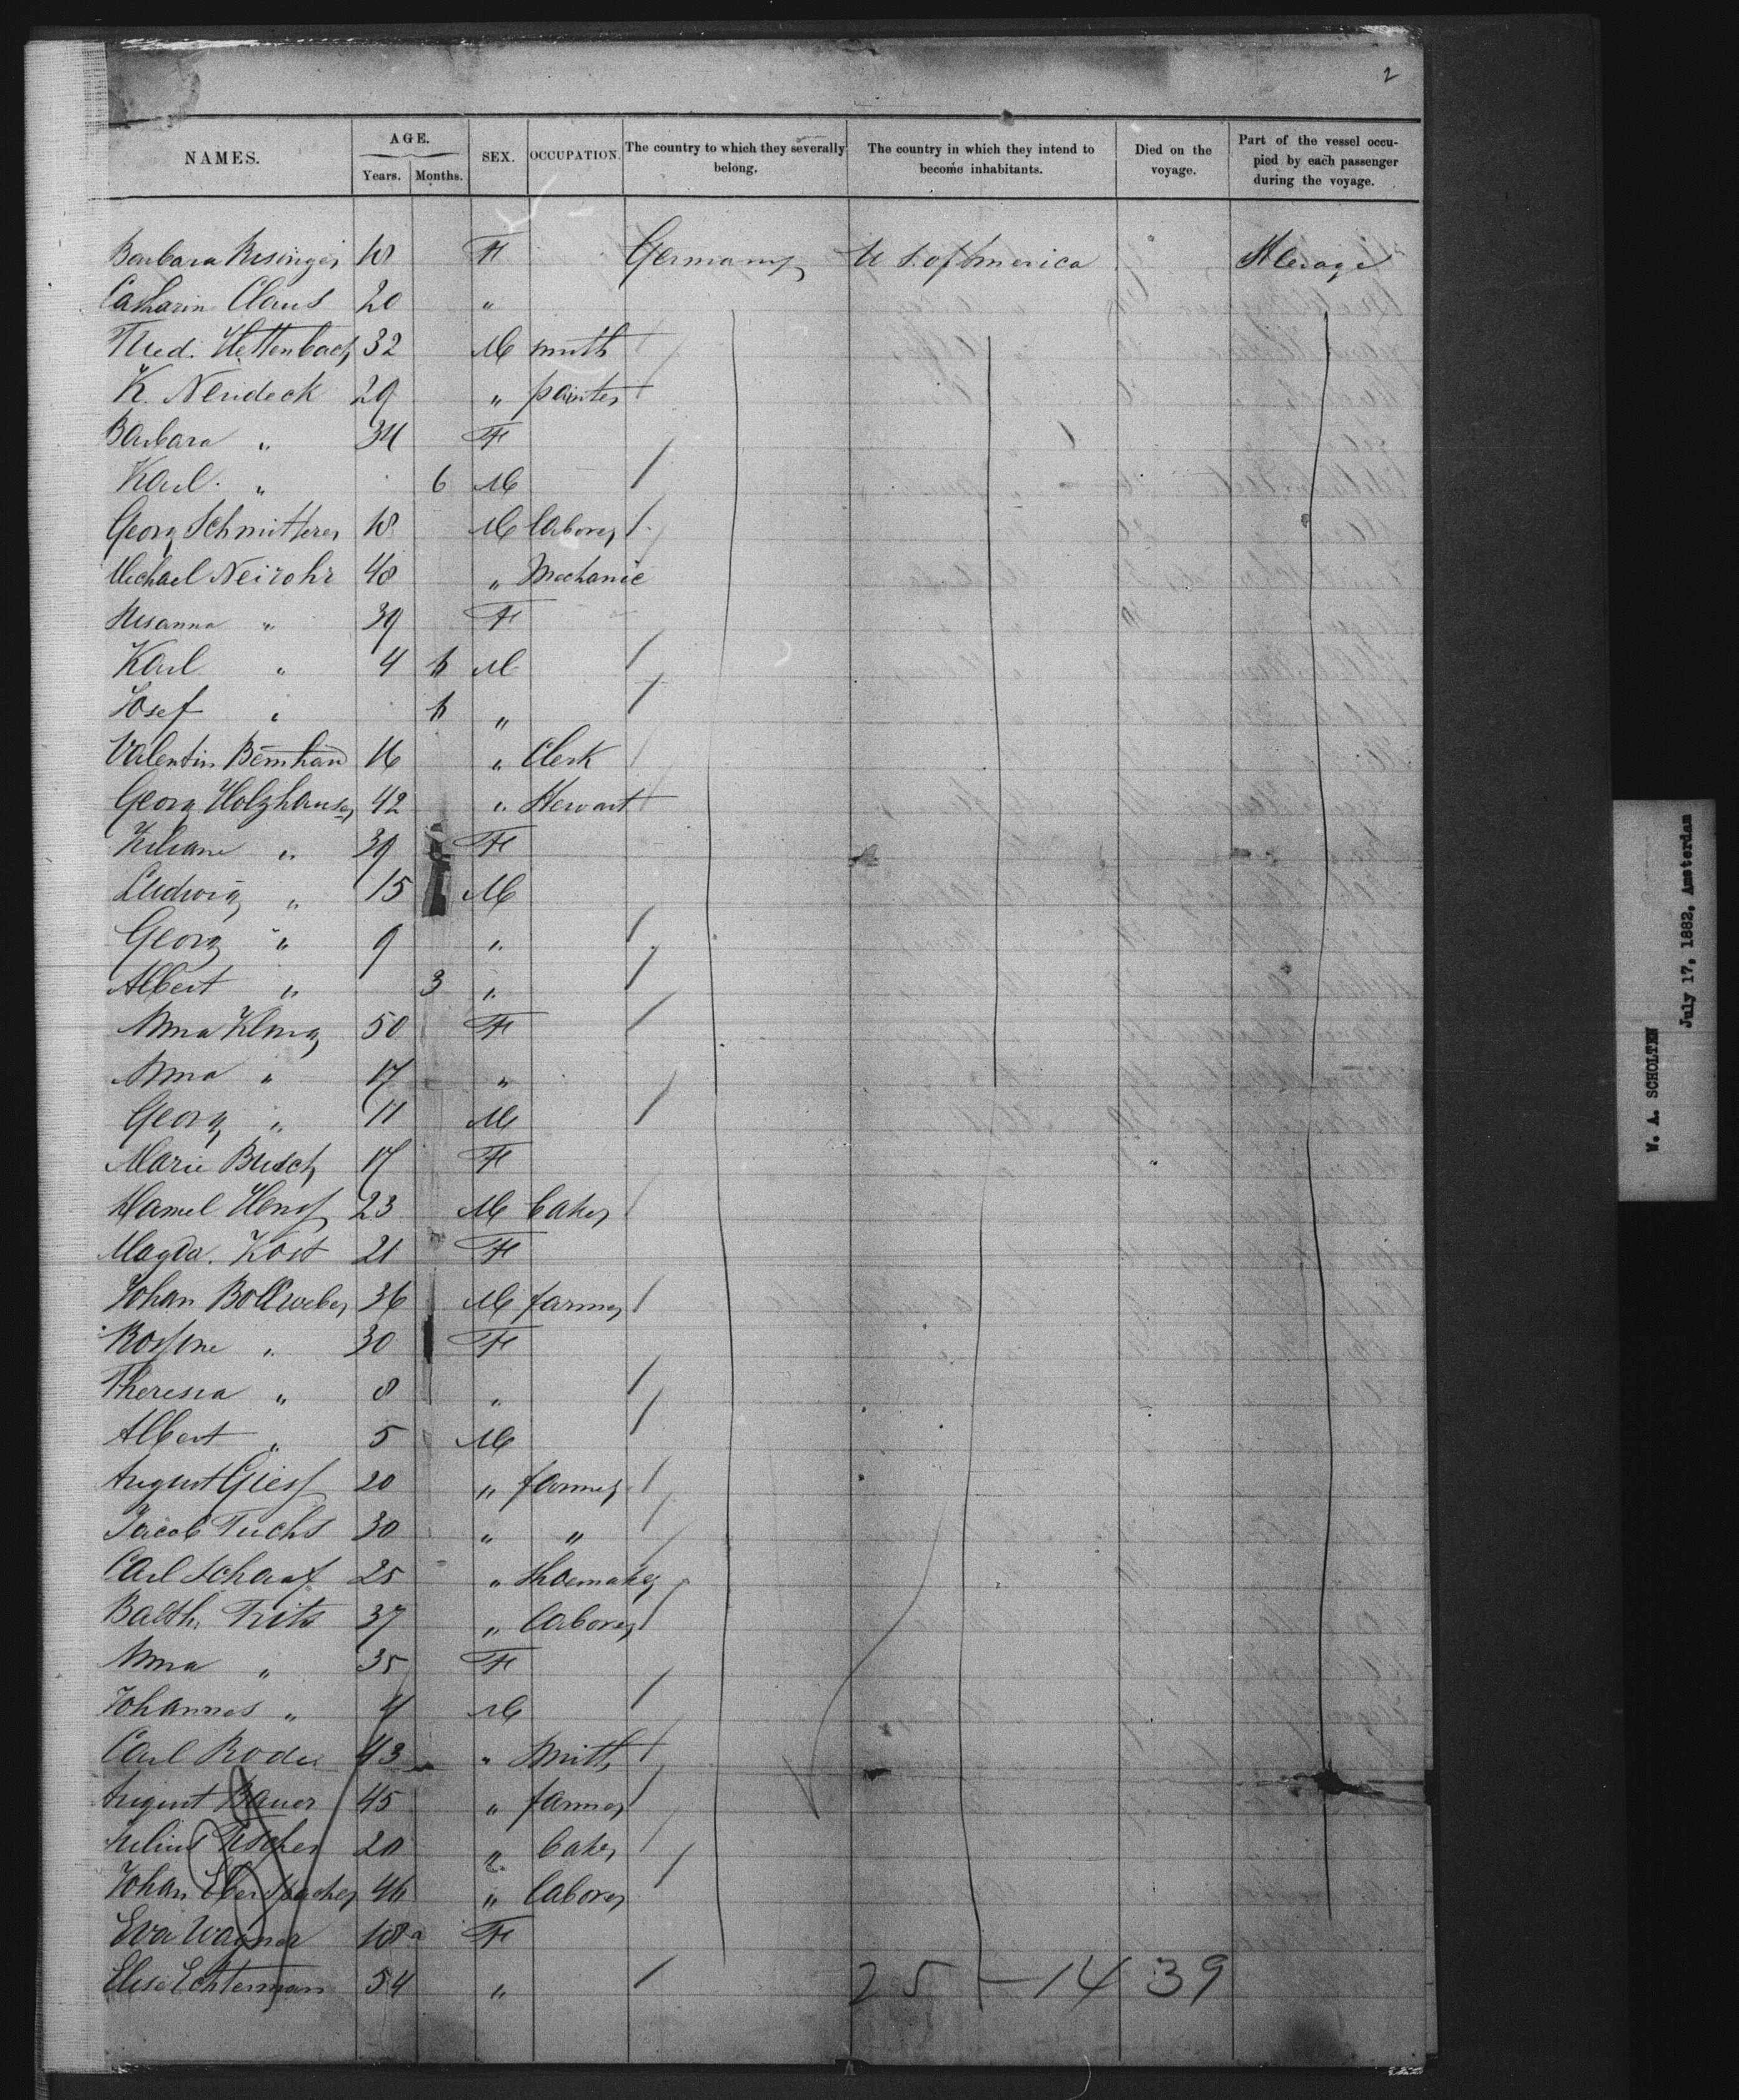 2
NAMES. AGE. Years. Months. SEX. OCCUPATION. The country to which they severally belong. The country in which they intend to become inhabitants. Died on the voyage. Part of the vessel occupied by each passenger during the voyage.
Barbara 18 F Germany U S. of America Sterage
Catharin Claus 20 "
Fried. Hettenbach 32 M smith
K. Neudeck 29 " painter
Barbara " 34 F
Karl " 6 M
Georg Schmitterer 18 M laborer
Michael Neirohr 48 " Mechanic
Susanna " 39 F
Karl " 4 M
Josef " "
Valentin Bernhard 16 " Clerk
Georg Holzhauser 42 " Stewart
Juliane " 39 F
Ludwig " 15 M
Georg " 9 "
Albert " 3 "
Anna Kling 50 F
Anna " 17 "
Georg " 11 M
Marie Busch 17 F
23 M baker
Magda. Kost 21 F
Johan Bollweber 36 M farmer
Rosine " 30 F
Theresia " 8 "
Albert " 5 M
August Giess 20 " farmer
Jacob Fuchs 30 " "
Carl Schaaf 25 " Shoemaker
Balth. Fritz 37 " laborer
Anna " 35 F
Johannes " 4 M
Carl 43 " Smith
August Bauer 45 " farmer
Julius Fischer 20 " baker
Johan Eberspacher 46 " laborer
Eva Wagner 18 F
Elise Echterman 54 "
25 - 14 39
W. A. SCHOLTEN
July 17, 1882, Amsterdam